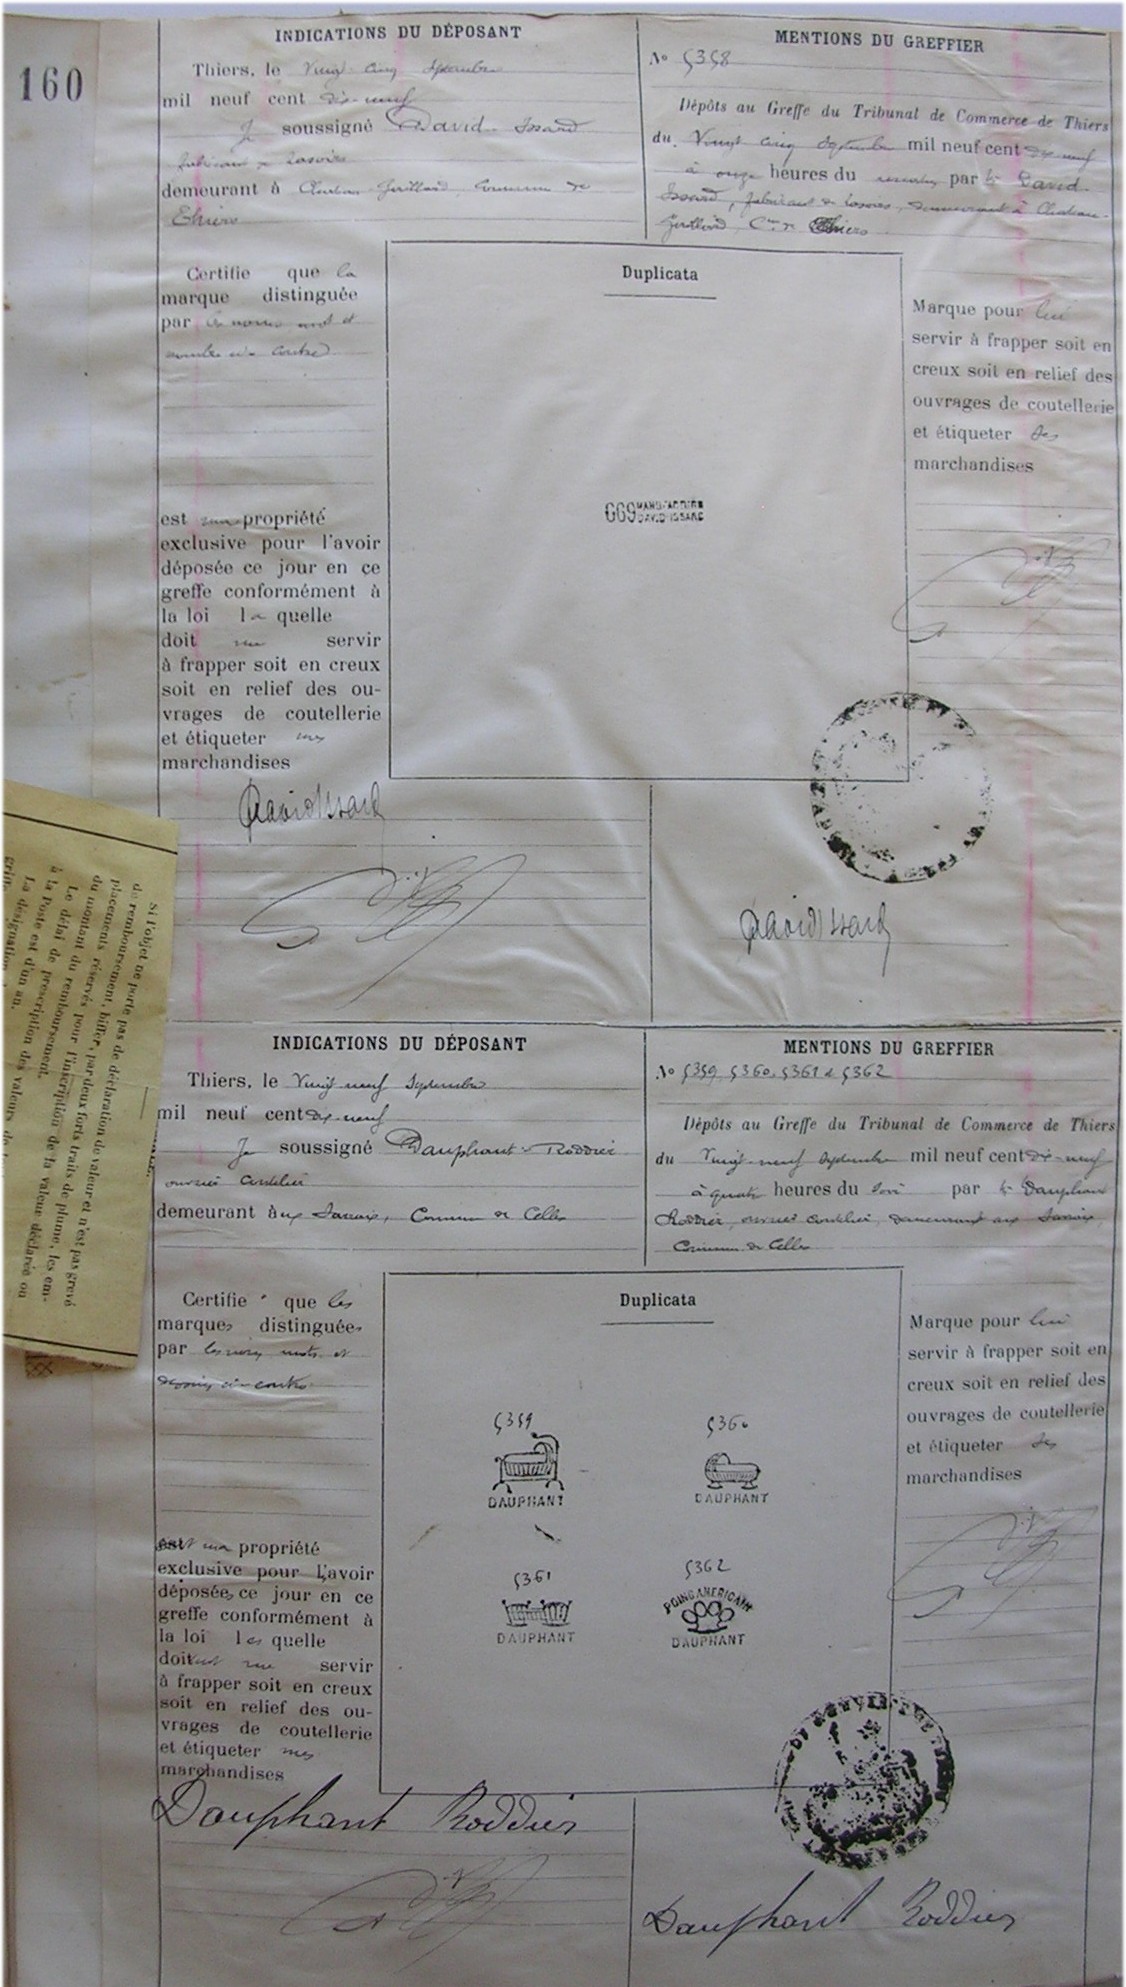 160
INDICATIONS DU DÉPOSANT
Thiers, le Vingt cinq Septembre
mil neuf cent dix-neuf
Je soussigné David-Issard
fabricant de rasoirs
demeurant à Château-Gaillard, Commune de
Thiers
MENTIONS DU GREFFIER
No 5358
Dépôts au Greffe du Tribunal de Commerce de Thiers
du Vingt cinq Septembre mil neuf cent dix-neuf
à onze heures du matin par le David-
Issard, fabricant de rasoirs, demeurant à Château-
Gaillard, Cne de Thiers
Certifie que la
marque distinguée
par les mot et
ci-contre
est ma propriété
exclusive pour l'avoir
déposée ce jour en ce
greffe conformément à
la loi la quelle
doit me servir
à frapper soit en creux
soit en relief des ou-
vrages de coutellerie
et étiqueter mes
marchandises
Duplicata
669 MANUFACTURE
DAVID-ISSARD
Marque pour lui
servir à frapper soit en
creux soit en relief des
ouvrages de coutellerie
et étiqueter ses
marchandises
David Issard
David Issard
Si l'objet ne porte pas de déclaration de valeur et n'est pas grevé
de remboursement, biffer, par deux forts traits de plume, les em-
placements réservés pour l'inscription de la valeur déclarée ou
du montant du remboursement.
Le délai de prescription des valeurs
à la Poste est d'un an.
La désignation
INDICATIONS DU DÉPOSANT
Thiers, le Vingt-neuf Septembre
mil neuf cent dix-neuf
Je soussigné Dauphant-Roddier
ouvrier coutelier
demeurant aux Sarraix, Commune de Celles
MENTIONS DU GREFFIER
No 5359, 5360, 5361 & 5362
Dépôts au Greffe du Tribunal de Commerce de Thiers
du Vingt-neuf Septembre mil neuf cent dix-neuf
à quatre heures du soir par le Dauphant
Roddier, ouvrier coutelier, demeurant aux Sarraix,
Commune de Celles
Certifie que les
marques distinguées
par les mots et
dessins ci-contre
sont ma propriété
exclusive pour l'avoir
déposées ce jour en ce
greffe conformément à
la loi les quelle
doivent me servir
à frapper soit en creux
soit en relief des ou-
vrages de coutellerie
et étiqueter mes
marchandises
Duplicata
5359
DAUPHANT
5360
DAUPHANT
5361
DAUPHANT
5362
POING AMERICAIN
DAUPHANT
Marque pour lui
servir à frapper soit en
creux soit en relief des
ouvrages de coutellerie
et étiqueter ses
marchandises
Dauphant Roddier
Dauphant Roddier